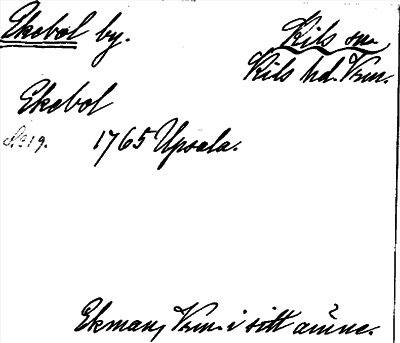 Ekebol by. Kils sn.
Kils hd. Vrm.
Ekebol
No 19. 1765 Upsala.
Ekman, Vrm. i sitt ämne.